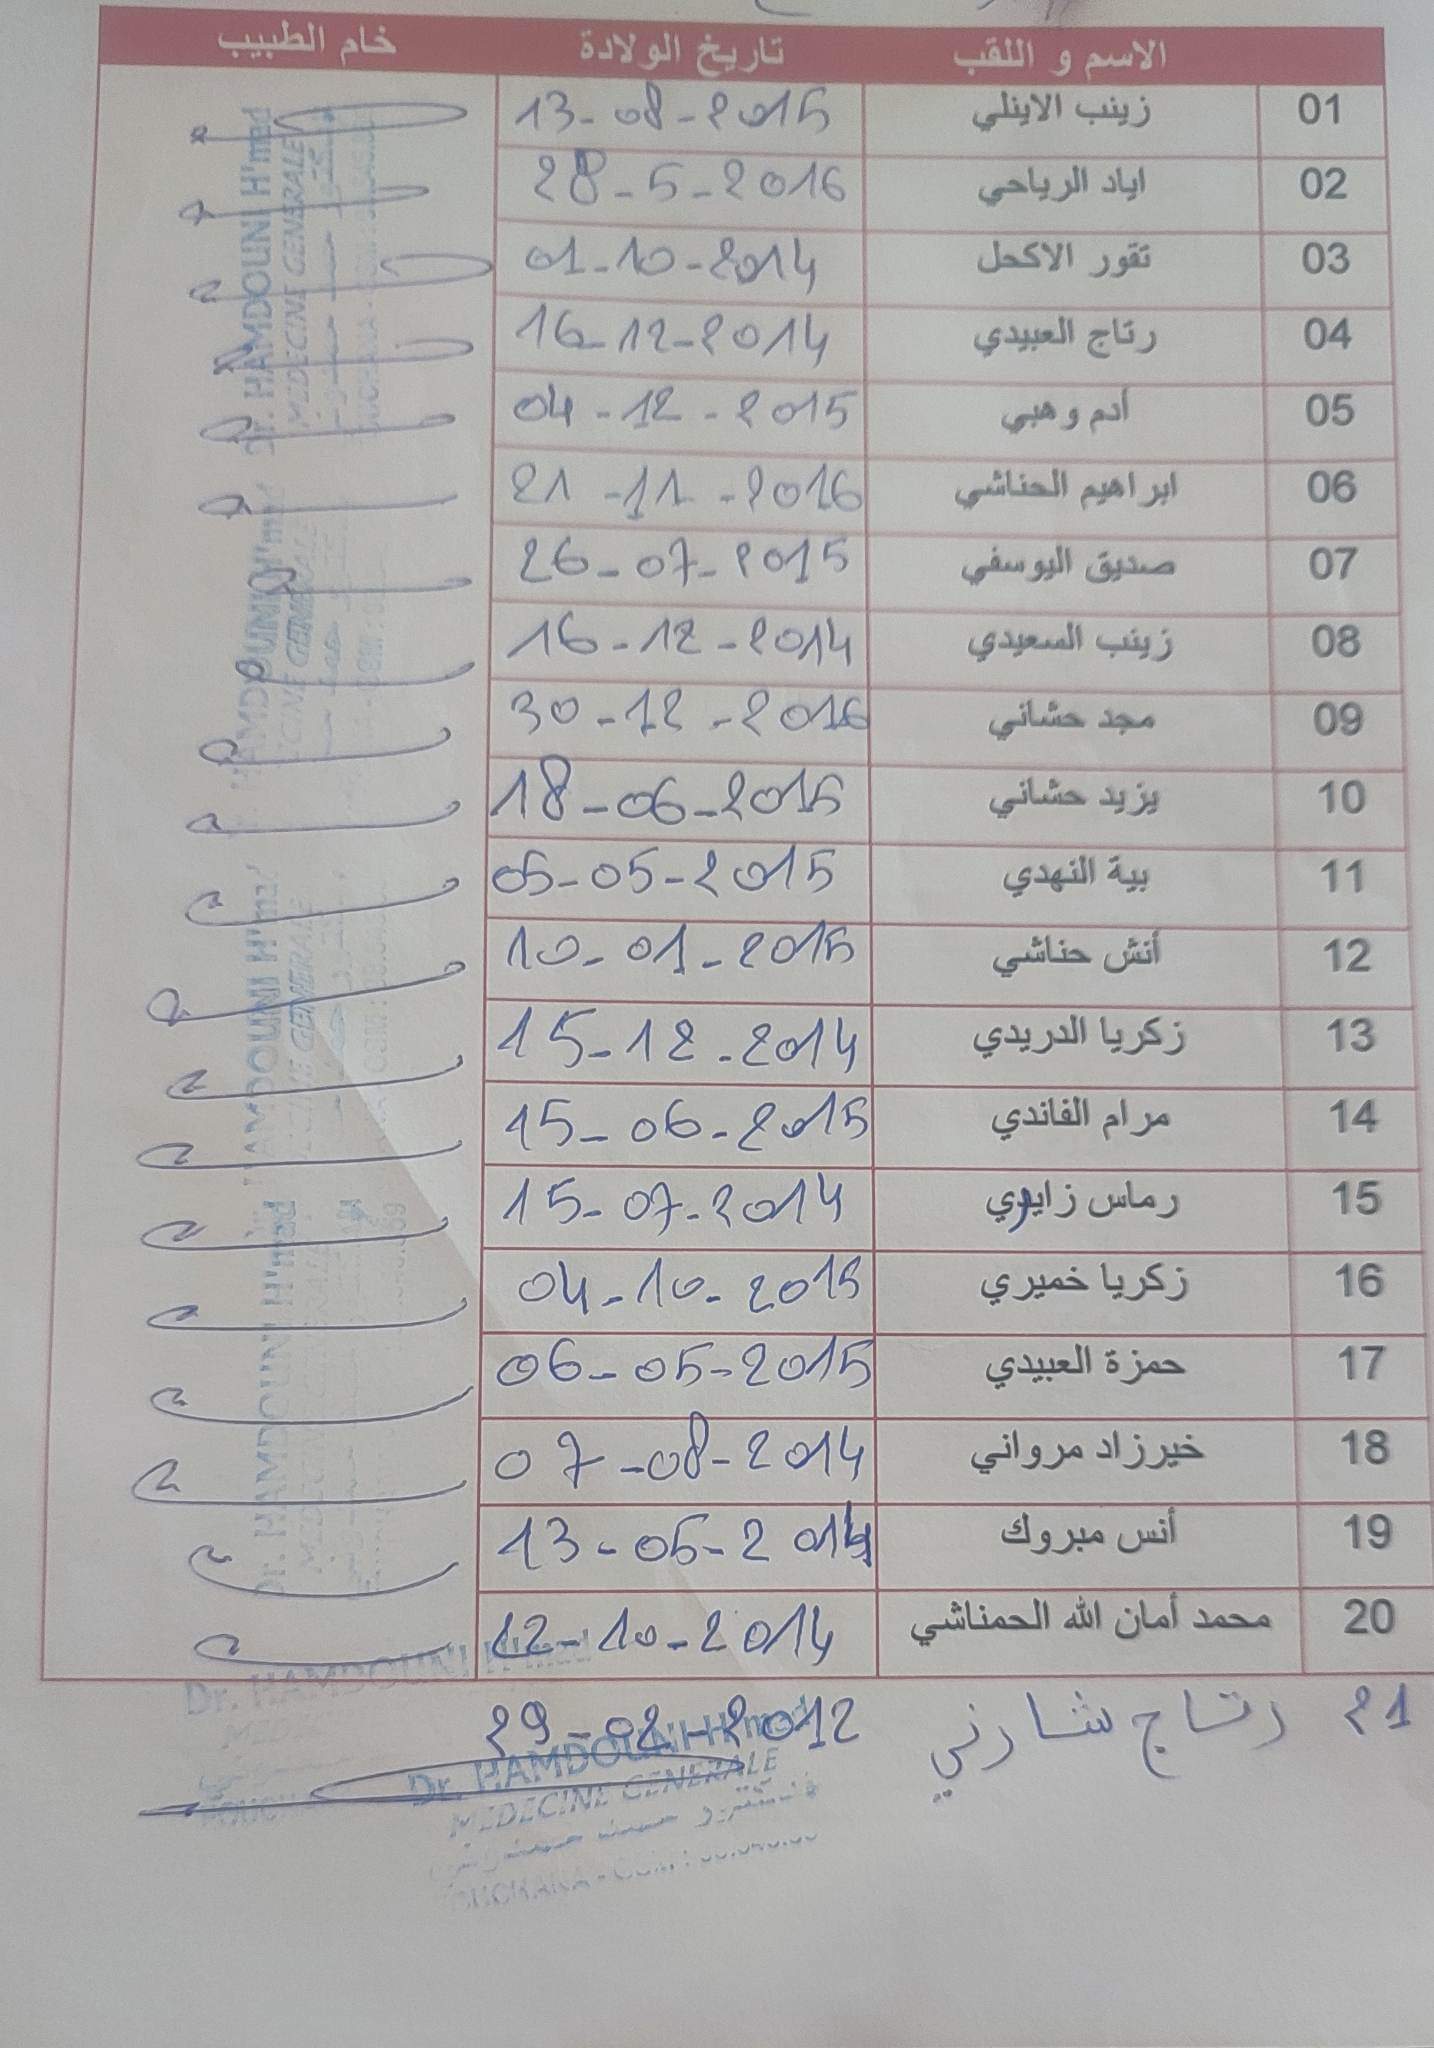 الاسم و اللقب تاريخ الولادة خام الطبيب
01 زينب الاينلي 13-08-2015
02 اياد الرياحي 28-5-2016
03 تقور الاكحل 01-10-2014
04 رتاج العبيدي 16-12-2014
05 أدم وهبي 04-12-2015
06 ابراهيم الحناشي 21-11-2016
07 صديق اليوسفي 26-07-2015
08 زينب السعيدي 16-12-2014
09 مجد حشاني 30-12-2016
10 يزيد حشاني 18-06-2015
11 بية النهدي 05-05-2015
12 أنش حناشي 10-01-2015
13 زكريا الدريدي 15-12-2014
14 مرام الفاندي 15-06-2015
15 رماس 15-07-2014
16 زكريا خميري 04-10-2015
17 حمزة العبيدي 06-05-2015
18 خيرزاد مرواني 07-08-2014
19 أنس مبروك 13-05-2014
20 محمد أمان الله الحمناشي 12-10-2014
21 رتاج شارني 29-02-2012
Dr. HAMDOUNI H'mad
MEDECINE GENERALE
Dr. HAMDOUNI H'mad
Dr. HAMDOUNI H'mad
Dr. HAMDOUNI H'mad
MEDECINE GENERALE